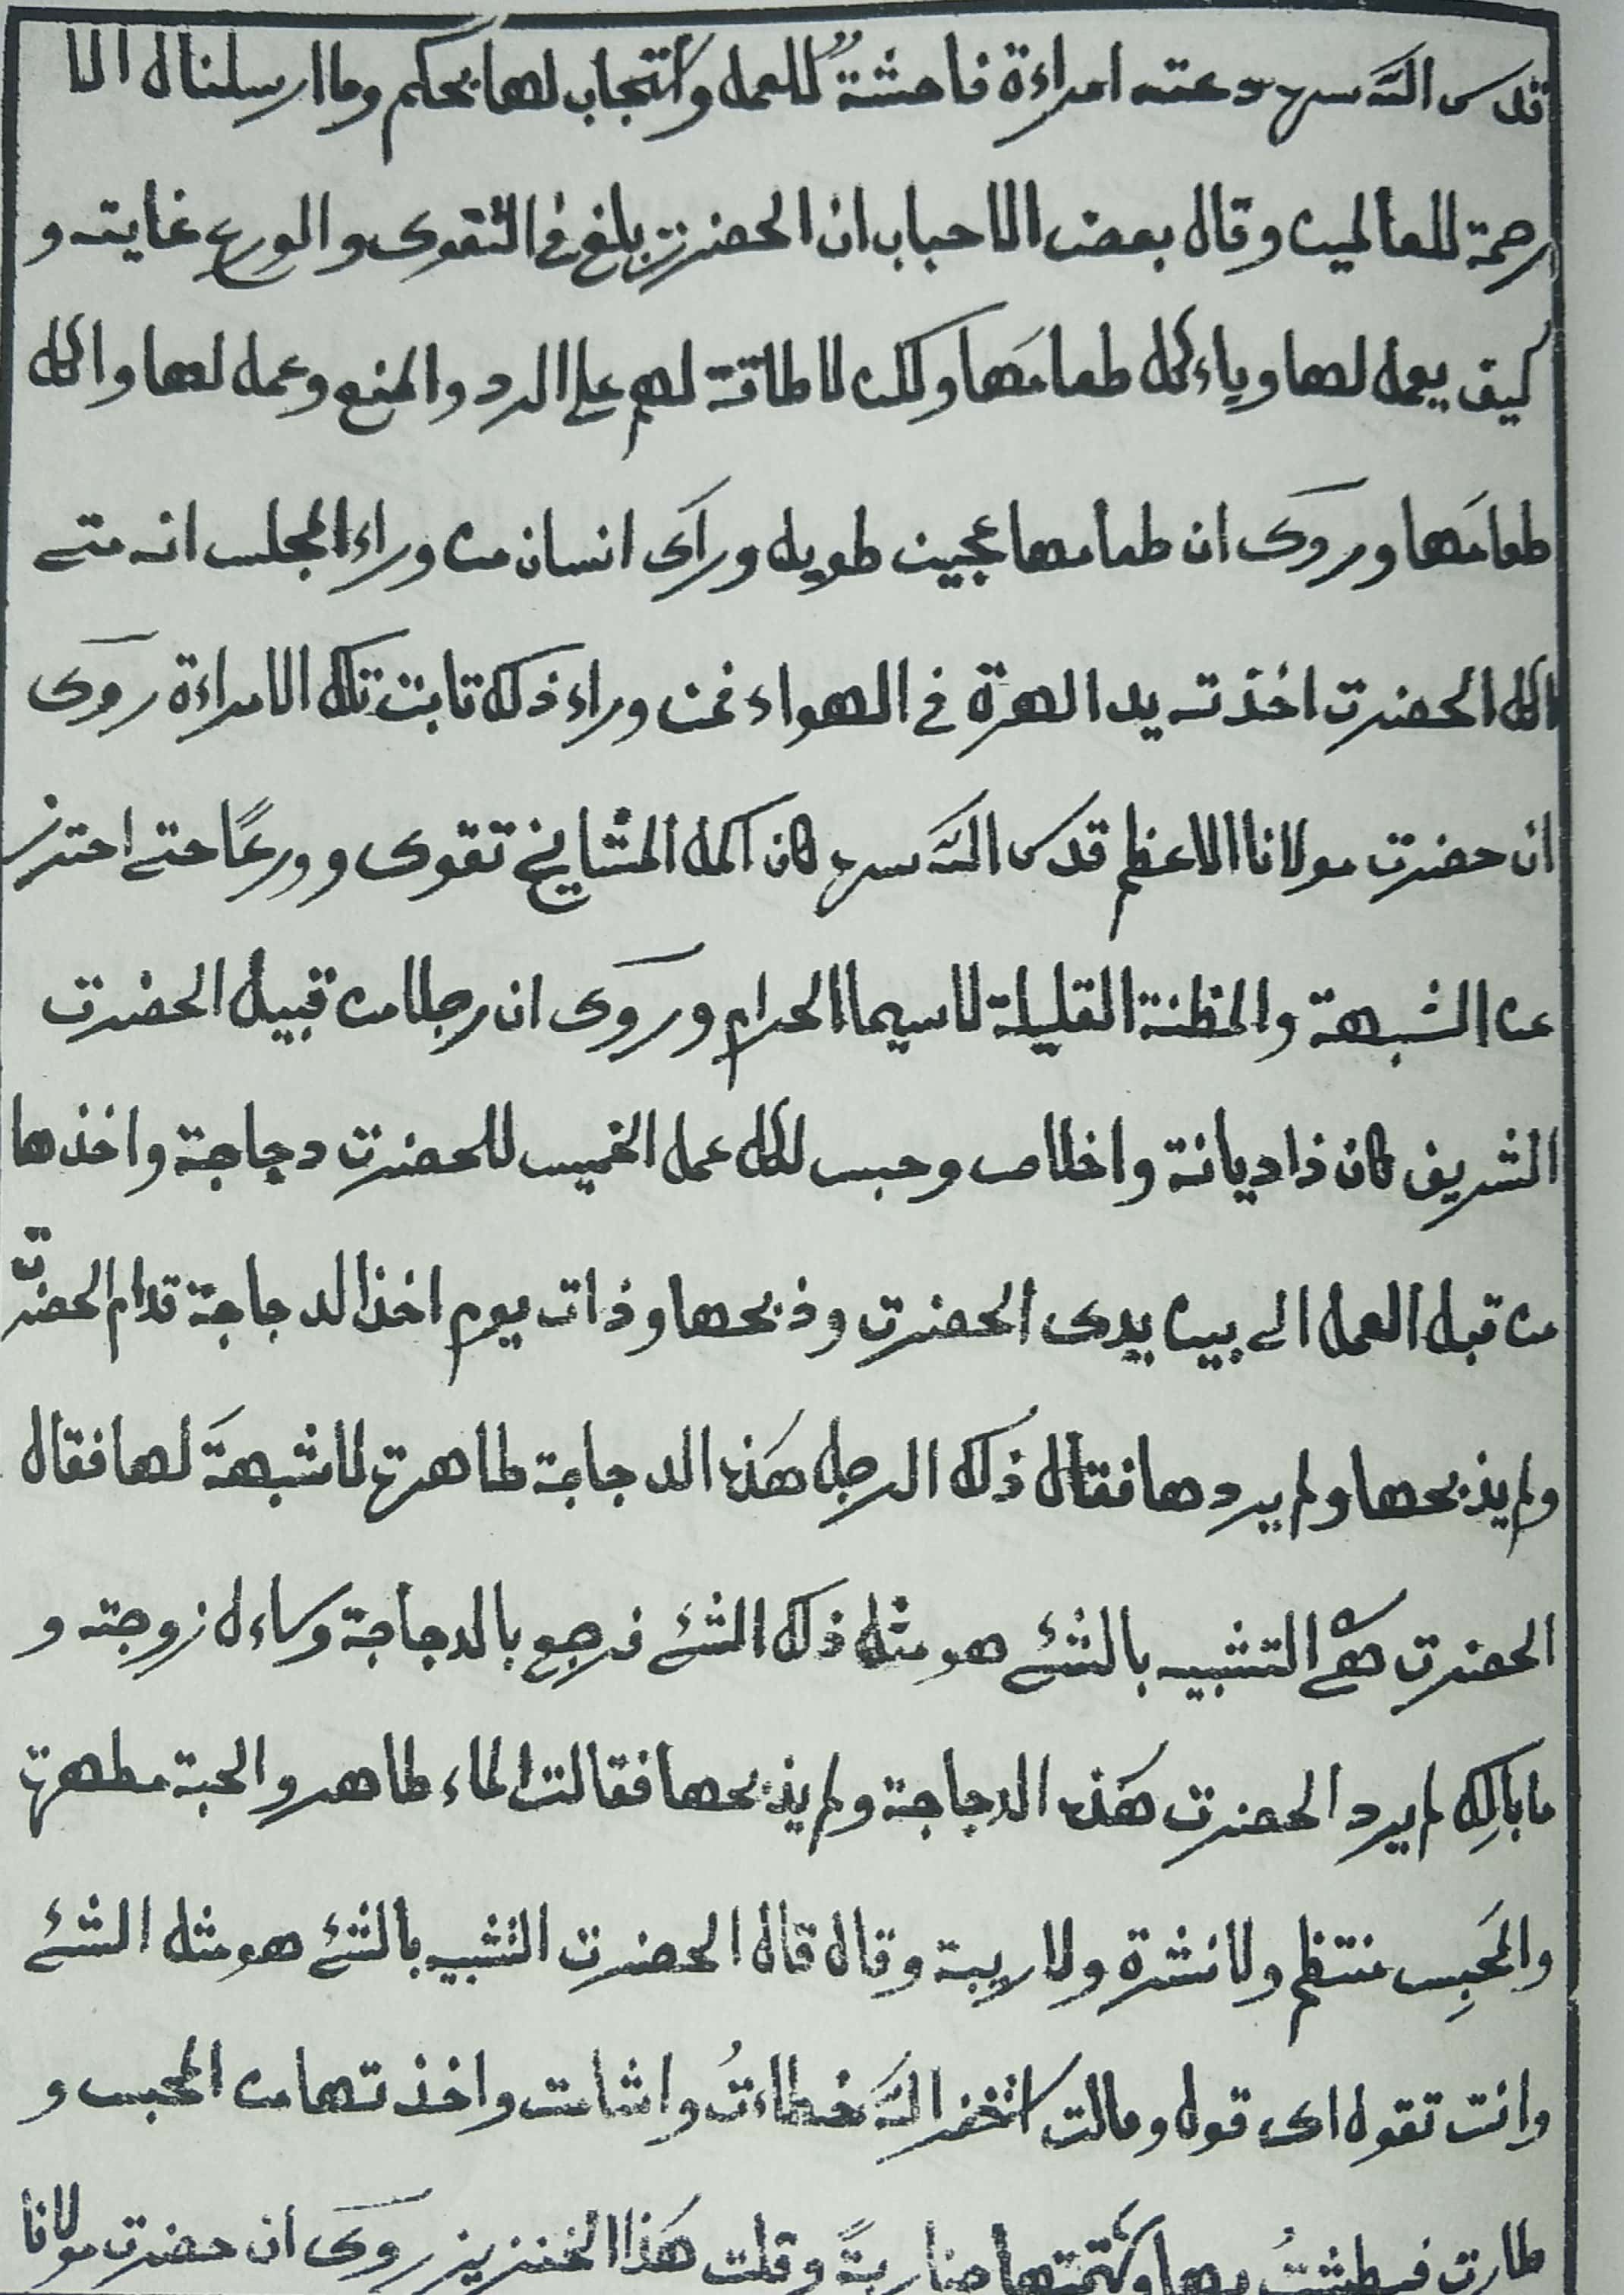 قدس الله سره دعته امراءة فاحشةٌ للعمل واستجاب لها بحكم وما ارسلناك الا
رحمة للعالمين وقال بعض الاحباب ان الحضرت بلغ في التقوى والورع غايته و
كيف يعمل لها وياءكل طعامَها ولكن لا طاقة لهم على الرد والمنع وعمل لها واكل
طعامَها وروى ان طعامها عجين طويل وراى انسان من وراء المجلس انه متى
اكل الحضرت اخذته يد الهرة في الهواء فمن وراء ذلك تابت تلك الامراءة روى
ان حضرت مولانا الاعظم قدس الله سره كان اكمل المشايخ تقوى وورعًا حتى احترز
عن الشبهة والمظنة القليلة لا سيما الحرام وروى ان رجلا من قبيل الحضرت
الشريف كان ذا ديانة واخلاص وحبس لكل عمل الخميس للحضرت دجاجة واخذها
من قبل العمل الى بين يدى الحضرت وذبحها وذات يوم اخذ الدجاجة قدام الحضرت
ولم يذبحها ولم يردها فقال ذلك الرجل هَذه الدجاجة طاهرة لا شبهةَ لها فقال
الحضرت التشبيه بالشئ هو مثل ذلك الشئ فرجع بالدجاجة وساءل زوجته و
ما بالكِ لم يرد الحضرت هَذه الدجاجة ولم يذبحها فقالت الماء طاهر والحبة مطهرة
والمَحبِس منتظم ولا نشرة ولا ريبة وقال قال الحضرت التشبيه بالشئ هو مثل الشئ
وانت تقول اى قول وقالت استغفر الله خطاءتُ واخذتها من المحبس و
طارت فبطشتُ بها ضاربةً وقلت هَذا الخنزيز روى ان حضرت مولانا